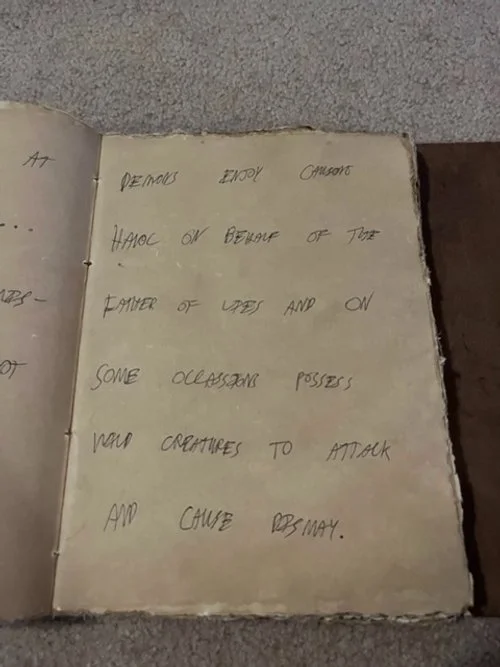 AT
...
DEMONS ENJOY CAUSING
HAVOC ON BEHALF OF THE
FATHER OF LIES AND ON
SOME OCCASSIONS POSSESS
WILD CREATURES TO ATTACK
AND CAUSE DISMAY.